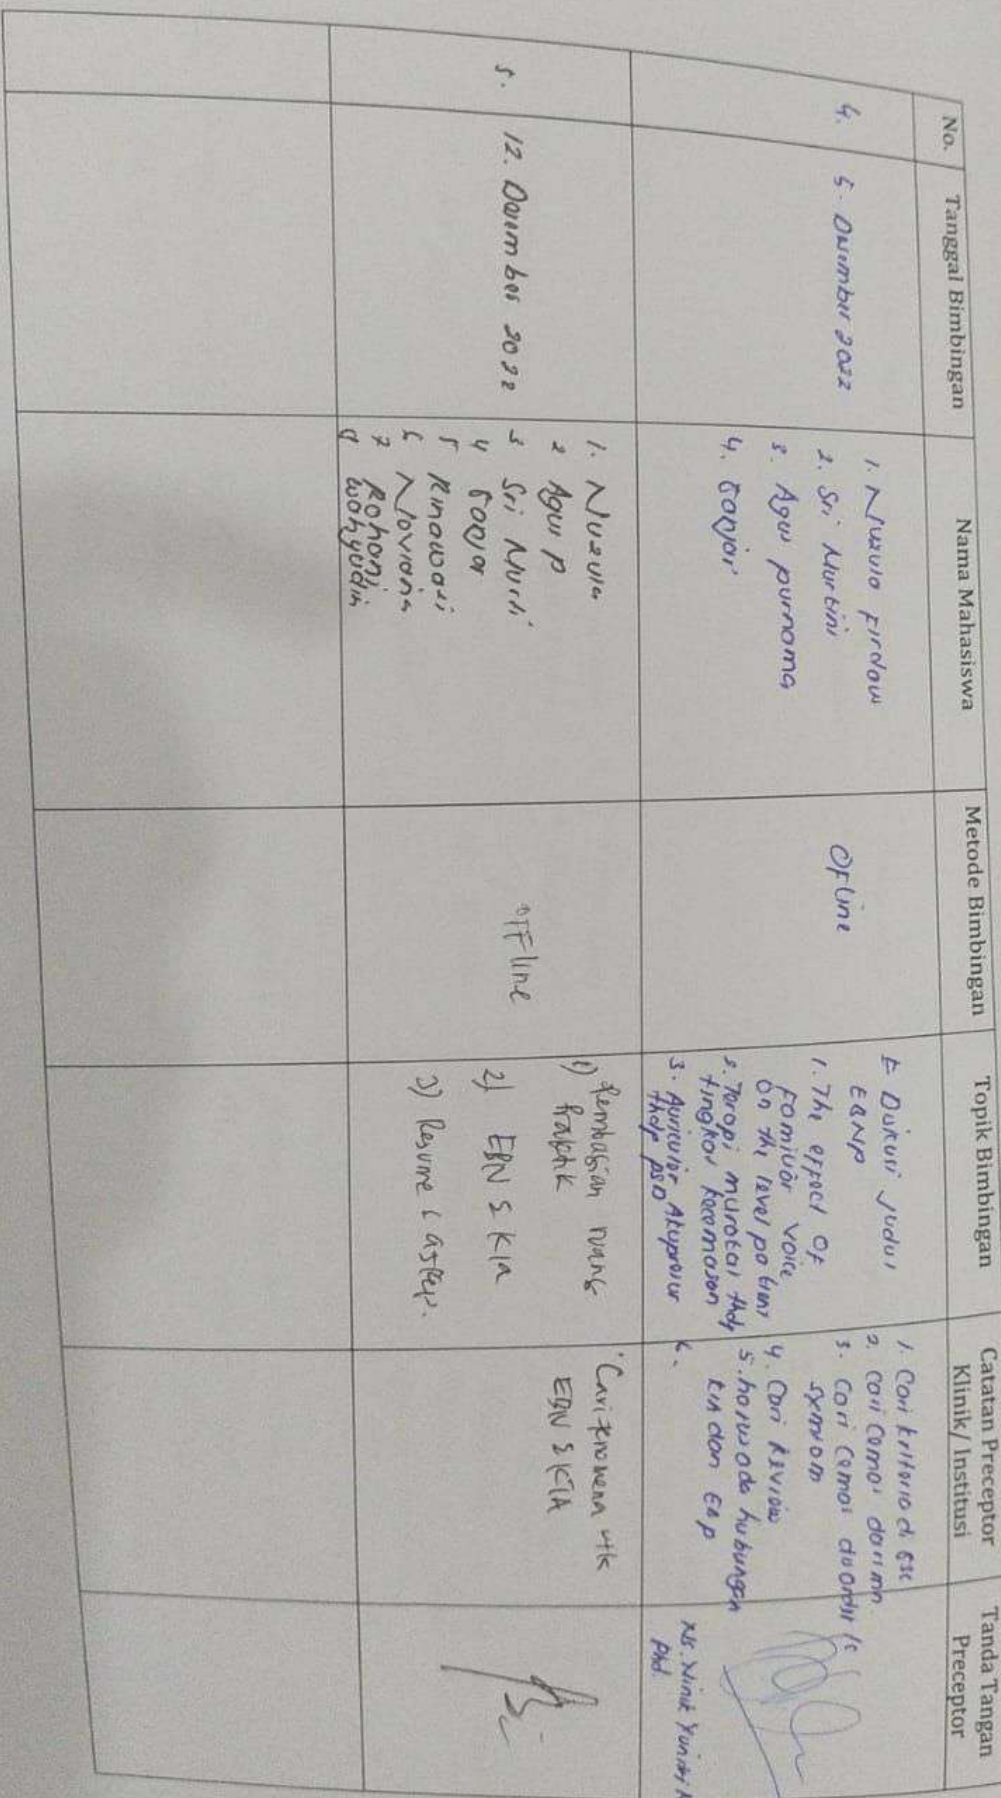 No.
Tanggal Bimbingan
Nama Mahasiswa
Metode Bimbingan
Topik Bimbingan
Catatan Preceptor
Klinik/ Institusi
Tanda Tangan
Preceptor
4.
5. Desember 2022
1. Nuzula Firdaus
2. Sri Murtini
3. Agus purnoma
4. Ganjar
OFline
Diskusi Judul
EBNP
1. The effect OF
Familiar voice
on the level patient
2. Terapi murotal thdp
tingkat kecemasan
3. Auricular Akupresur
thdp
1. Cari kriteria di
2. cari
3. Cari
4. Cari Review
5. harus ada hubungan
KIA dan
6.
Ns. Ninik Yunitri
Phd
5.
12. Desember 2022
1. Nuzula
2 Agus P
3 Sri Murti
4 Ganjar
5 Rinawati
6 Noviana
7 Rohani
8 Wahyudin
OFFline
1) Pembagian ruang
Praktik
2) EBN & KIA
3) Resume & askep.
Cari fenomena utk
EBN & KIA